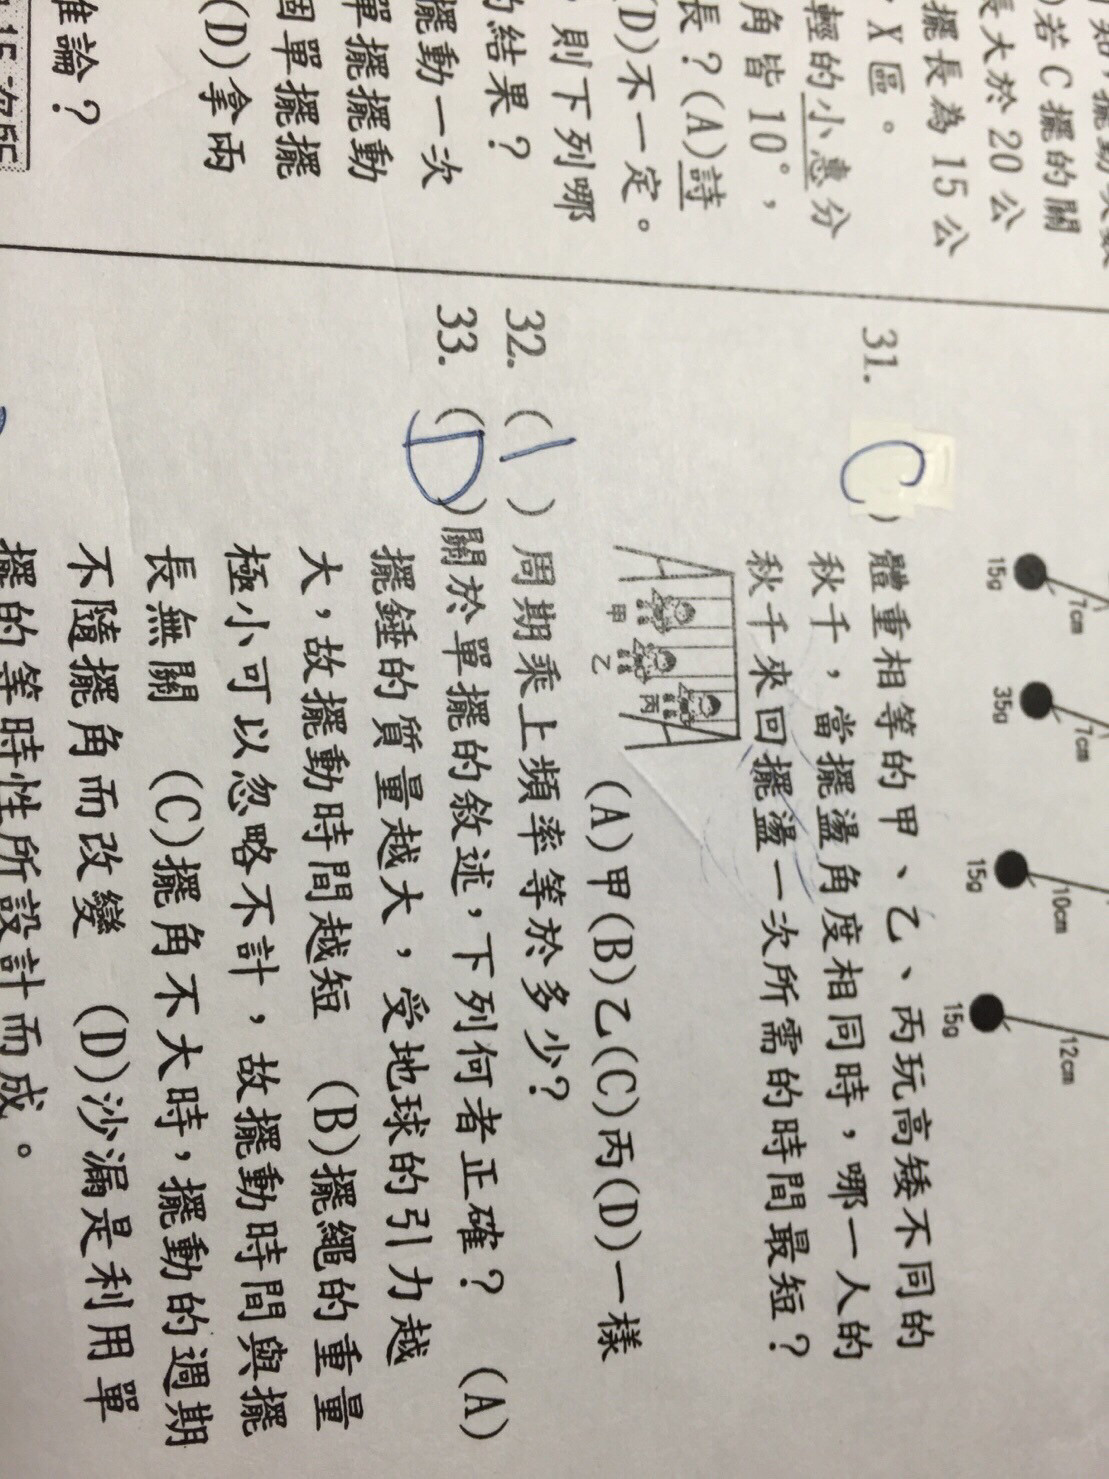 知,擺動次數
)若C擺的關
長大於20公
擺長為15公
,X區。
輕的小惠分
角皆10°,
長?(A)詩
(D)不一定。
,則下列哪
的結果?
擺動一次
單擺擺動
固單擺擺
(D)拿兩
推論?
15g 7cm
35g 7cm
15g 10cm
15g 12cm
31. C)體重相等的甲、乙、丙玩高矮不同的
秋千,當擺盪角度相同時,哪一人的
秋千來回擺盪一次所需的時間最短?
甲 乙 丙
(A)甲(B)乙(C)丙(D)一樣
32. (1)周期乘上頻率等於多少?
33. (D)關於單擺的敘述,下列何者正確? (A)
擺錘的質量越大,受地球的引力越
大,故擺動時間越短 (B)擺繩的重量
極小可以忽略不計,故擺動時間與擺
長無關 (C)擺角不大時,擺動的週期
不隨擺角而改變 (D)沙漏是利用單
擺的等時性所設計而成。